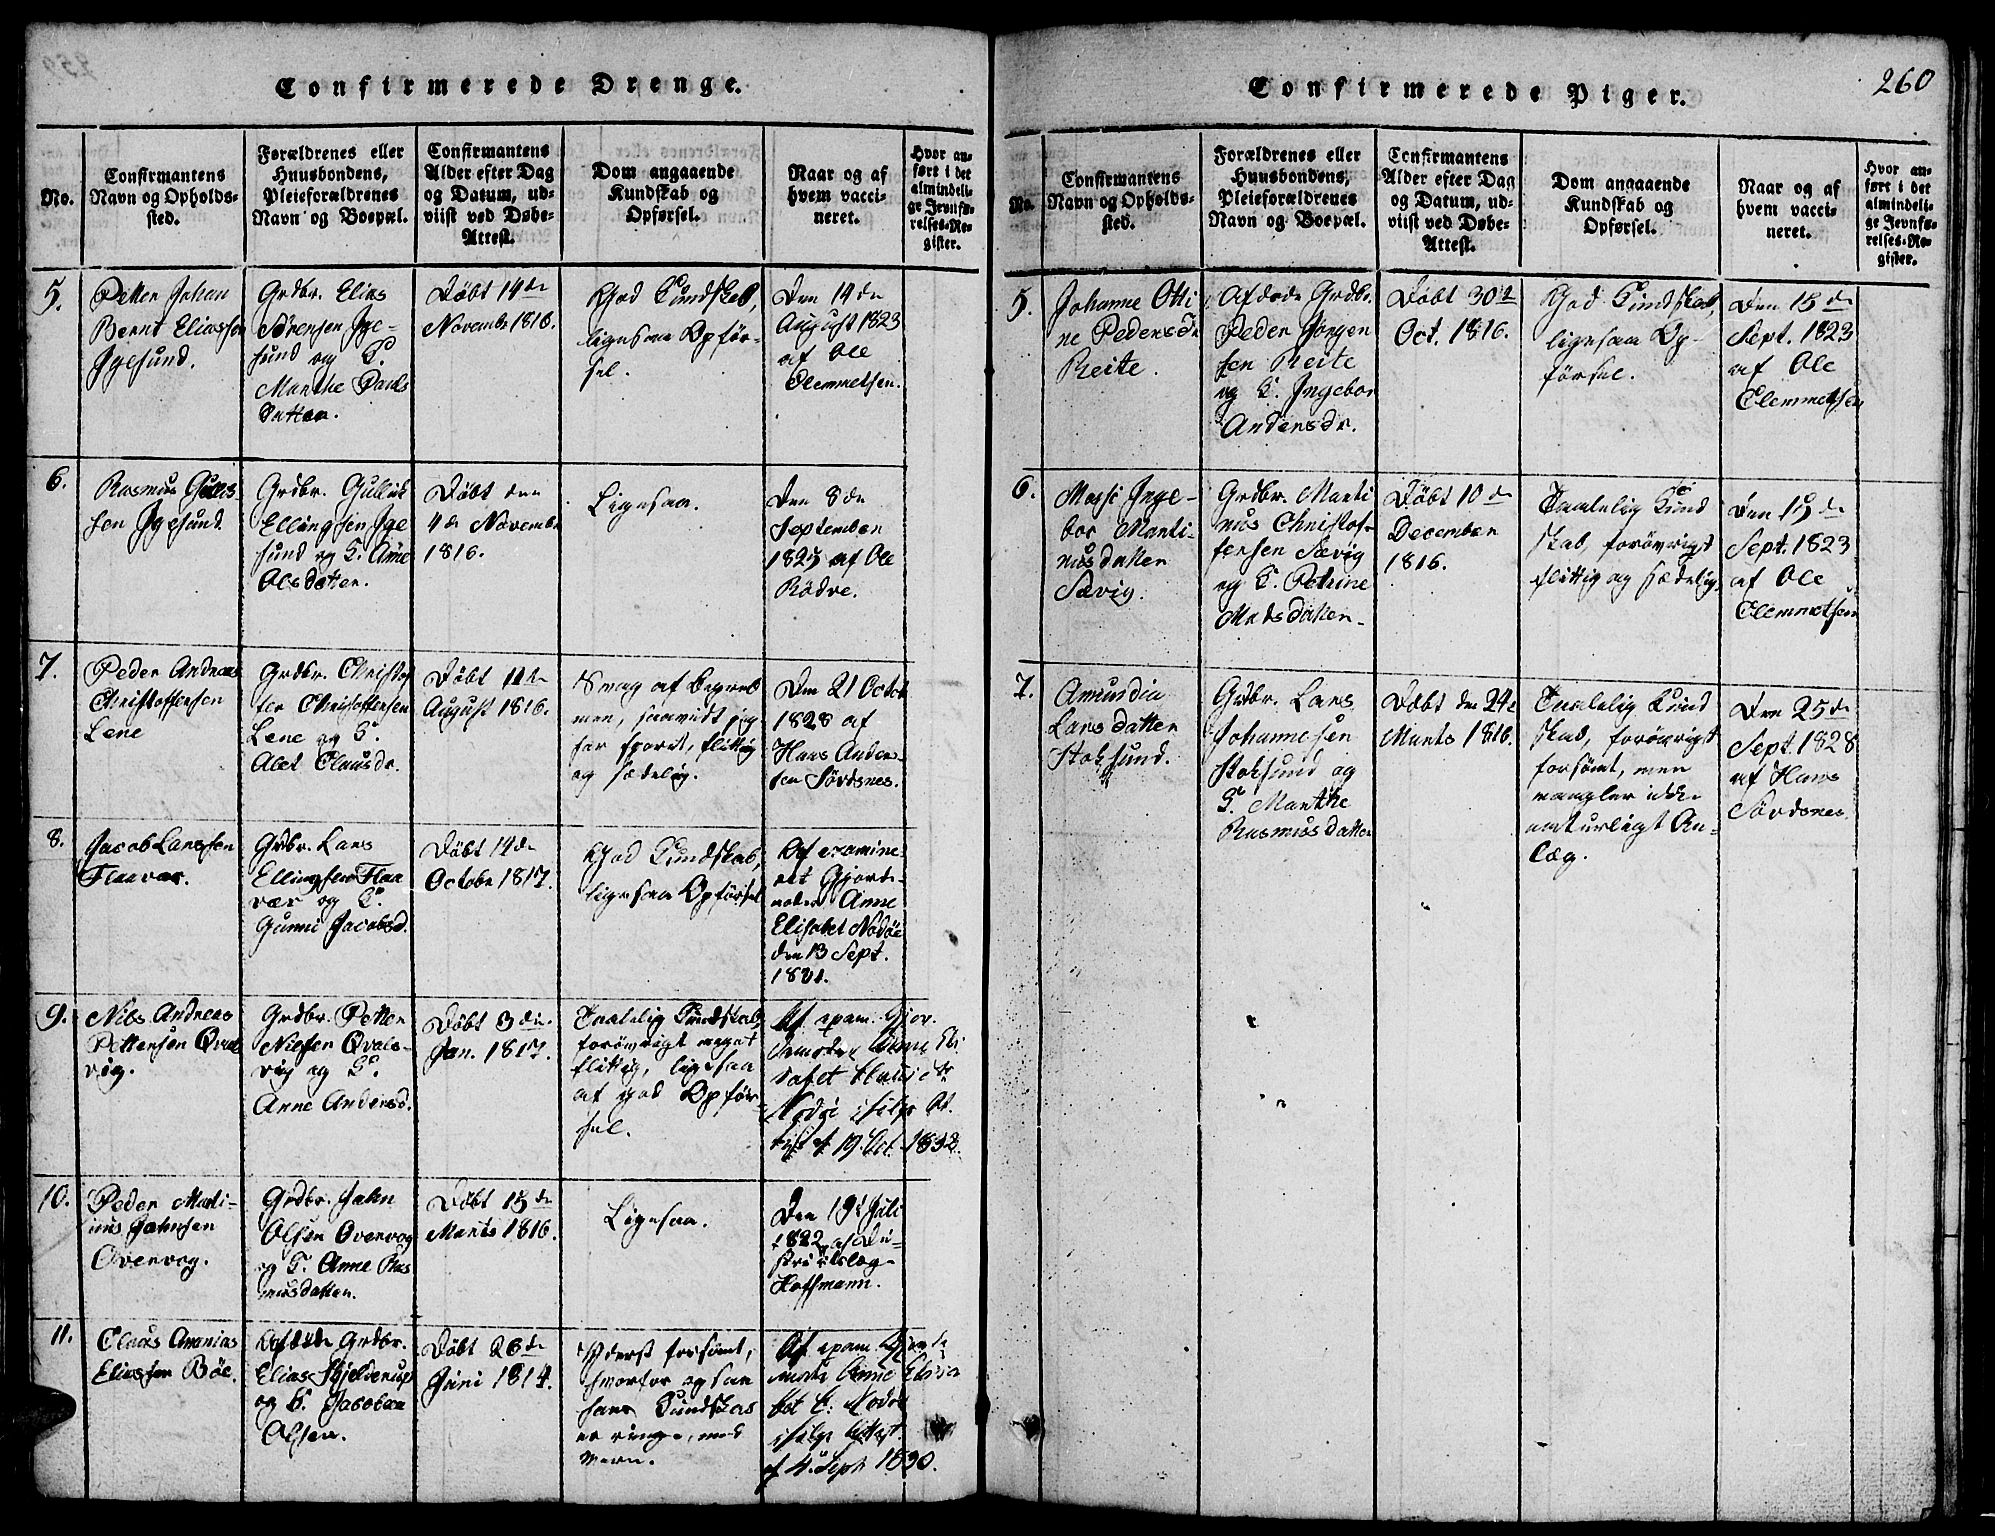 Confirmerede Drenge.
No.
Confirmantens
Navn og Opholds-
sted.
Forældrenes eller
Huusbondens,
Pleieforældrenes
Navn og Boepæl.
Confirmantens
Alder efter Dag
og Datum, ud-
viist ved Døbe-
Attest.
Dom angaaende
Kundskab og
Opførsel.
Naar og af
hvem vacci-
neret.
Hvor an-
ført i det
almindeli-
ge Jevnfø-
relses-Re-
gister.
5.
Petter Johan
Bernt Eliassen
Igesund.
Grdbr. Elias
Sørensen Ige-
sund og K.
Marthe Pauls
Datter.
Døbt 14de
Novembr 1816.
God Kundskab,
ligesaa Opfør-
sel.
Den 14de
August 1823
af Ole
Clemmetsen.
6.
Rasmus Gullis-
sen Igesund.
Grdbr. Gullik
Ellingsen Ige
sund og K. Ane
Olsdatter.
Døbt den
4de Novembr
1816.
Ligesaa.
Den 8de
September
1825 af Ole
Rødve.
7.
Peder Andreas
Christoffersen
Lene
Grdbr. Christof
fer Christoffersen
Lene og K.
Alet Clausdr.
Døbt 11te
August 1816.
Svag af Begreb
men, saavidt jeg
har sporet, flittig
og sædelig.
Den 21 Octob
1828 af
Hans Ander-
sen Sørdsnes.
8.
Jacob Larssen
Flaavær.
Grdbr. Lars
Ellingsen Flaa
vær og K.
Gunni Jacobsd.
Døbt 14de
Octobr 1817.
God Kundskab,
ligesaa Opførsel
Af examine-
ret Gjorde-
moder Anne
Elisabet Nødøe
den 13 Sept.
1821.
9.
Nils Andreas
Pettersen Qvals
vig.
Grdbr. Petter
Nielsen Qvals-
vig og K.
Anne Andersd.
Døbt 3die
Jan. 1817.
Taalelig Kundskab,
forøvrigt meget
flittig, ligesaa
af god Opfør-
sel.
Af exam. Gjor.
Anne Eli
sabet
Nødøe ifølge At.
19. Oct. 1832.
10.
Peder Marti-
nus Jahnsen
Overvog.
Grdbr. Jahn
Olsen Overvog
og K. Anne Ras
musdatter.
Døbt 15de
Marts 1816.
Ligesaa.
Den 19 Juli
1822 af Di-
strictslæg-
Hoffmann.
11.
Claus Ananias
Eliassen Bøe.
Afdøde Grdbr.
Elias Skjelderup
og K. Jacobæa
Olsen.
Døbt 26de
Juni 1814.
Yderst forsømt,
hvorfor ogsaa
hans Kundskab
er ringe, med
Af exam. Gjorde
moder Anne Elisa
bet C. Nødøe
ifølge Attest
af 4. Sept 1830.
260
Confirmerede Piger.
No.
Confirmantens
Navn og Opholds-
sted.
Forældrenes eller
Huusbondens,
Pleieforældrenes
Navn og Boepæl.
Confirmantens
Alder efter Dag
og Datum, ud-
viist ved Døbe-
Attest.
Dom angaaende
Kundskab og
Opførsel.
Naar og af
hvem vacci-
neret.
Hvor an-
ført i det
almindeli-
ge Jevnfø-
relses-Re-
gister.
5.
Johanne Otti
ne Pedersdr
Reite.
Afdøde Grdbr.
Peder Jørgen
sen Reite
og K. Ingebor
Andersdr.
Døbt 30te
Oct. 1816.
God Kundskab,
ligesaa Op-
førsel.
Den 15de
Sept. 1823
af Ole
Clemmetsen
6.
Massi Inge-
bor Marti-
nusdatter
Sævig.
Grdbr. Marti
nus Christof-
fersen Sævig
og K. Petrine
Madsdatter.
Døbt 10de
December
1816.
Taalelig Kund
skab, forøvrigt
flittig og sædelig.
Den 15de
Sept. 1823
af Ole
Clemmetsen
7.
Amundia
Larsdatter
Stoksund.
Grdbr. Lars
Johannesen
Stoksund og
K. Marthe
Rasmusdatter
Døbt den 24de
Marts 1816.
Taalelig Kund
skab, forøvrigt
forsømt, men
mangler ikke
naturligt An-
læg.
Den 25de
Sept. 1828
af Hans
Sørdsnes.